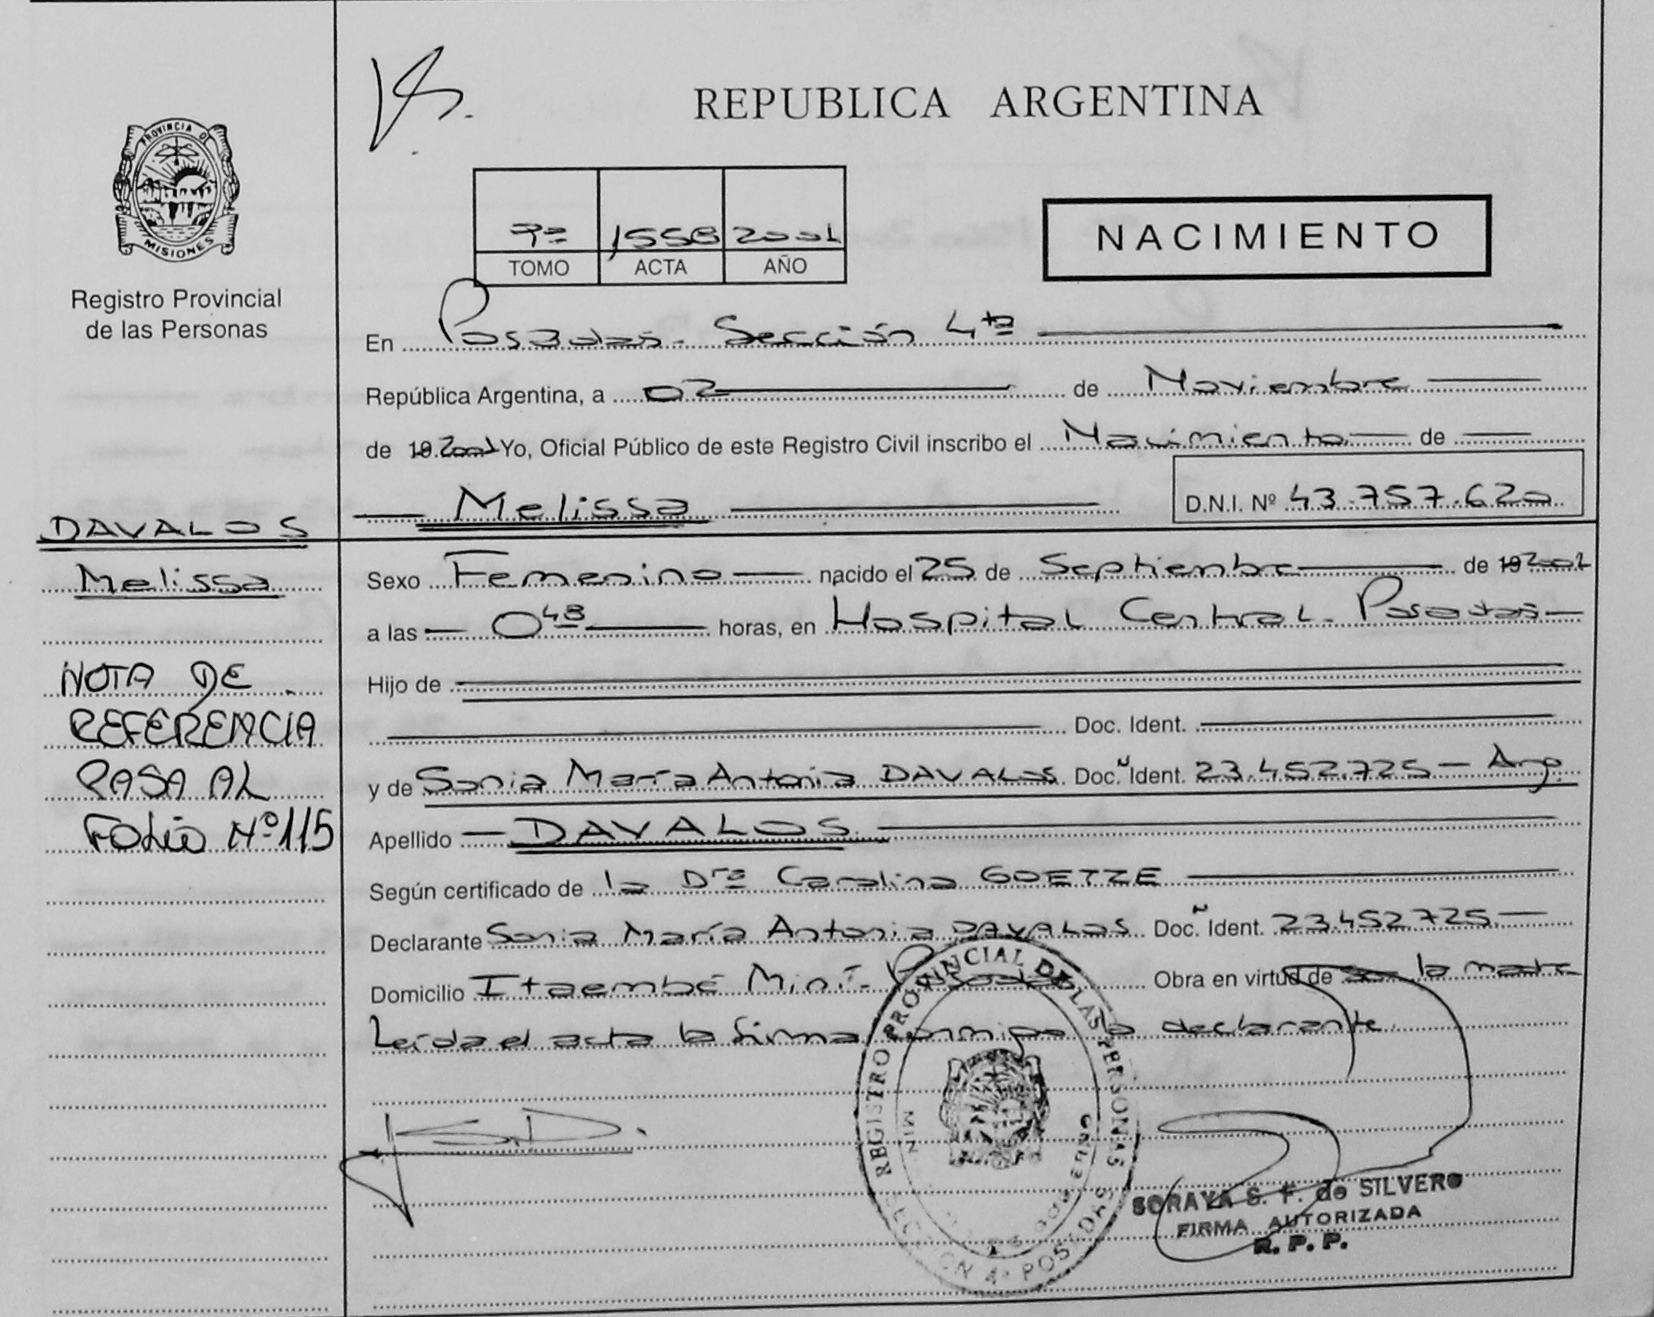 PROVINCIA DE
MISIONES
Registro Provincial
de las Personas
REPUBLICA ARGENTINA
7º 1558 2001
TOMO ACTA AÑO
NACIMIENTO
En Posadas - Sección 4ta
República Argentina, a 02 de Noviembre
de 19 2001 Yo, Oficial Público de este Registro Civil inscribo el Nacimiento de
Melissa D.N.I. Nº 43.757.620
DAVALOS
Melissa
NOTA DE
REFERENCIA
PASA AL
FOLIO Nº 115
Sexo Femenino nacido el 25 de Septiembre de 19 2001
a las 0 48 horas, en Hospital Central - Posadas
Hijo de
Doc. Ident.
y de Sonia María Antonia DAVALOS Doc. Ident. 23.452.725 - Arg.
Apellido DAVALOS
Según certificado de la Dra Carolina GOETZE
Declarante Sonia María Antonia DAVALOS Doc. Ident. 23.452.725.
Domicilio Itaembé Miní - Posadas Obra en virtud de la madre
Leída el acta la firma conmigo la declarante.
S.D.
REGISTRO PROVINCIAL DE LAS PERSONAS
SECCION 4ª POSADAS
SORAYA S. F. de SILVERO
FIRMA AUTORIZADA
R. P. P.